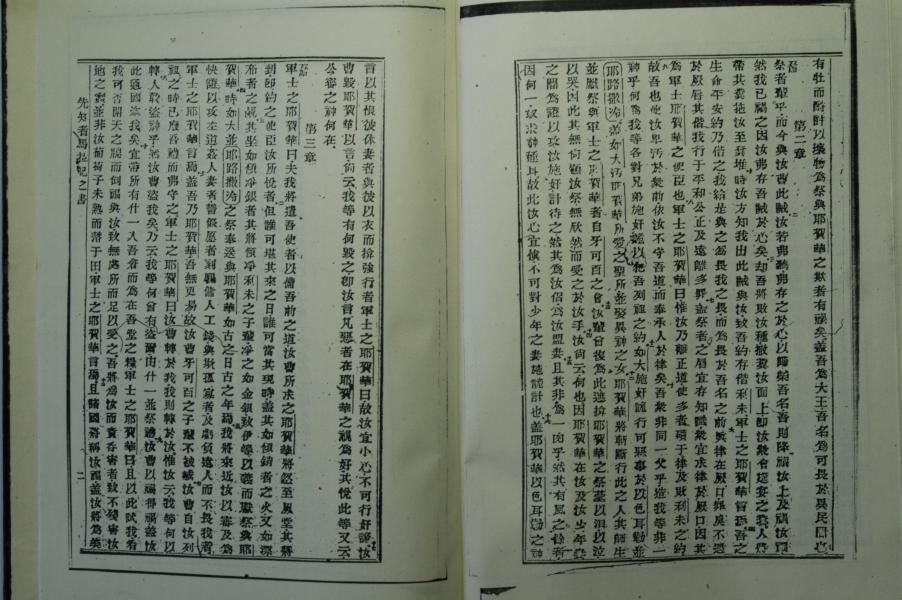 有牡而酬許以壞物為祭與耶賀華之欺者有禍矣蓋吾為大王吾名為可畏於異民間也
第二章
祭者輩乎而今與汝曹此誡汝若弗聽弗存之於心以歸榮吾名吾則降禍汝上及禍汝福
然我已禍之因汝弗存吾誡於心矣却吾將敗汝種撒糞汝面上即汝衆會筵宴之糞人將
帶其糞捲汝至糞堆時汝方知我出此誡與汝致吾約存偕利未軍士之耶賀華曾語吾之
生命平安約乃偕之我給是與之為畏我之畏而為畏於吾名之前矣律在厥口罪莫不遇
於厥唇其偕我行于平和公正及遠離多罪蓋祭者之唇宜存知識衆宜求律於厥口因其
為軍士耶賀華之使臣也軍士之耶賀華曰惟汝乃離正道使多者礙于律及敗利未之約
故吾也使汝卑汚於衆前依汝不守吾道而奉承人於律矣吾衆非同一父乎造我等非一
神乎何為我等各對兄弟施奸詭以犯吾列祖之約如大施奸詭行可惡事於以色耳勒並
耶路撒冷蓋如大汚耶賀華所愛之聖所並娶異神之女耶賀華將斬斷行此之人其師生
並厭祭與軍士之耶賀華者自牙可百之會汝輩曾復為此遮掩耶賀華之祭臺以淚以泣
以哭因此其無向顧汝祭無欣然而受之於汝手汝尚云何也因耶賀華在汝及汝少年妻
之間為證以攻汝施奸計之然其為汝侶為汝盟妻且其非為一肉乎然其有風之餘者
因何一致求神種耳故此汝心宜慎不可對少年之妻施詭計也蓋耶賀華以色耳勒之神
言以其恨彼休妻者與彼以衣而掩強行者軍士之耶賀華曰故汝宜小心不可行奸詭汝
曹毀耶賀華以言尚云我等有何毀之即汝言凡惡者在耶賀華之視為好其悅此等又云
公審之神何在
第三章
軍士之耶賀華曰夫我將遣吾使者以備吾前之道汝曹所求之耶賀華將忽至厥堂其將
到即約之使臣汝所悅者但誰可堪其來之日誰可當其現時蓋其如傾銷者之火又如漂
布者之鹼其坐如傾淨銀者其將傾淨利未之子輩淨之如金銀致伊等以義而獻祭與耶
賀華時如大並耶路撒冷之祭奉送與耶賀華如古之日古之年焉我將來近汝以審及為
快證以攻左道姦人妻者誓假愿者剝騙傭人工錢與斯孤寡者及虧負遠人而不畏我者
軍士之耶賀華言焉蓋吾乃耶賀華吾無更易故汝曹牙可百之子輩不被滅汝曹自汝列
祖之時已廢吾禮而弗守之軍士之耶賀華曰汝曹轉於我我則轉於汝惟汝云我等何以
轉人敢盜神乎然汝曹盜我矣乃云我等何曾有盜爾由什一並祭禮汝曹以禍得禍蓋汝
此通國盜我矣宜帶所有什一入吾倉而為在吾堂之糧軍士之耶賀華曰且以此試我看
我可否開天之牖而倒福與汝致無處所而足以受之吾將為汝而責吞害者致不殘害汝
地之實並非汝葡萄子未熟而落于田軍士之耶賀華言焉且諸國將稱汝福蓋汝將為美
先知者馬拉記之書
二